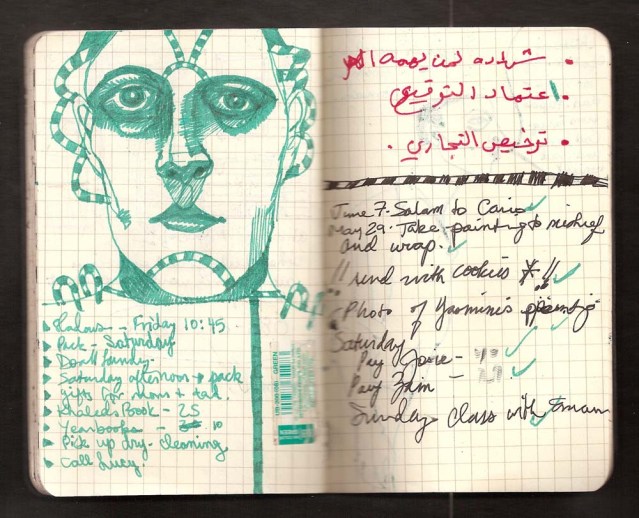 Friday 10:45
Pack - Saturday
Saturday afternoon → pack
gifts for mom + dad.
Khaleds Book - 25
Yearbooks - 10
Pick up dry-cleaning
Call Lucy.
GREEN
• شهاده لمن يهمه الأمر
• اعتماد التوقيع
• ترخيص التجاري .
June 7. Salam to Cairo
May 29. Take painting to
and wrap.
// send with cookies * !!
Photo of Yasmine's
Saturday
Pay
Pay Zain -
Sunday class with Eman